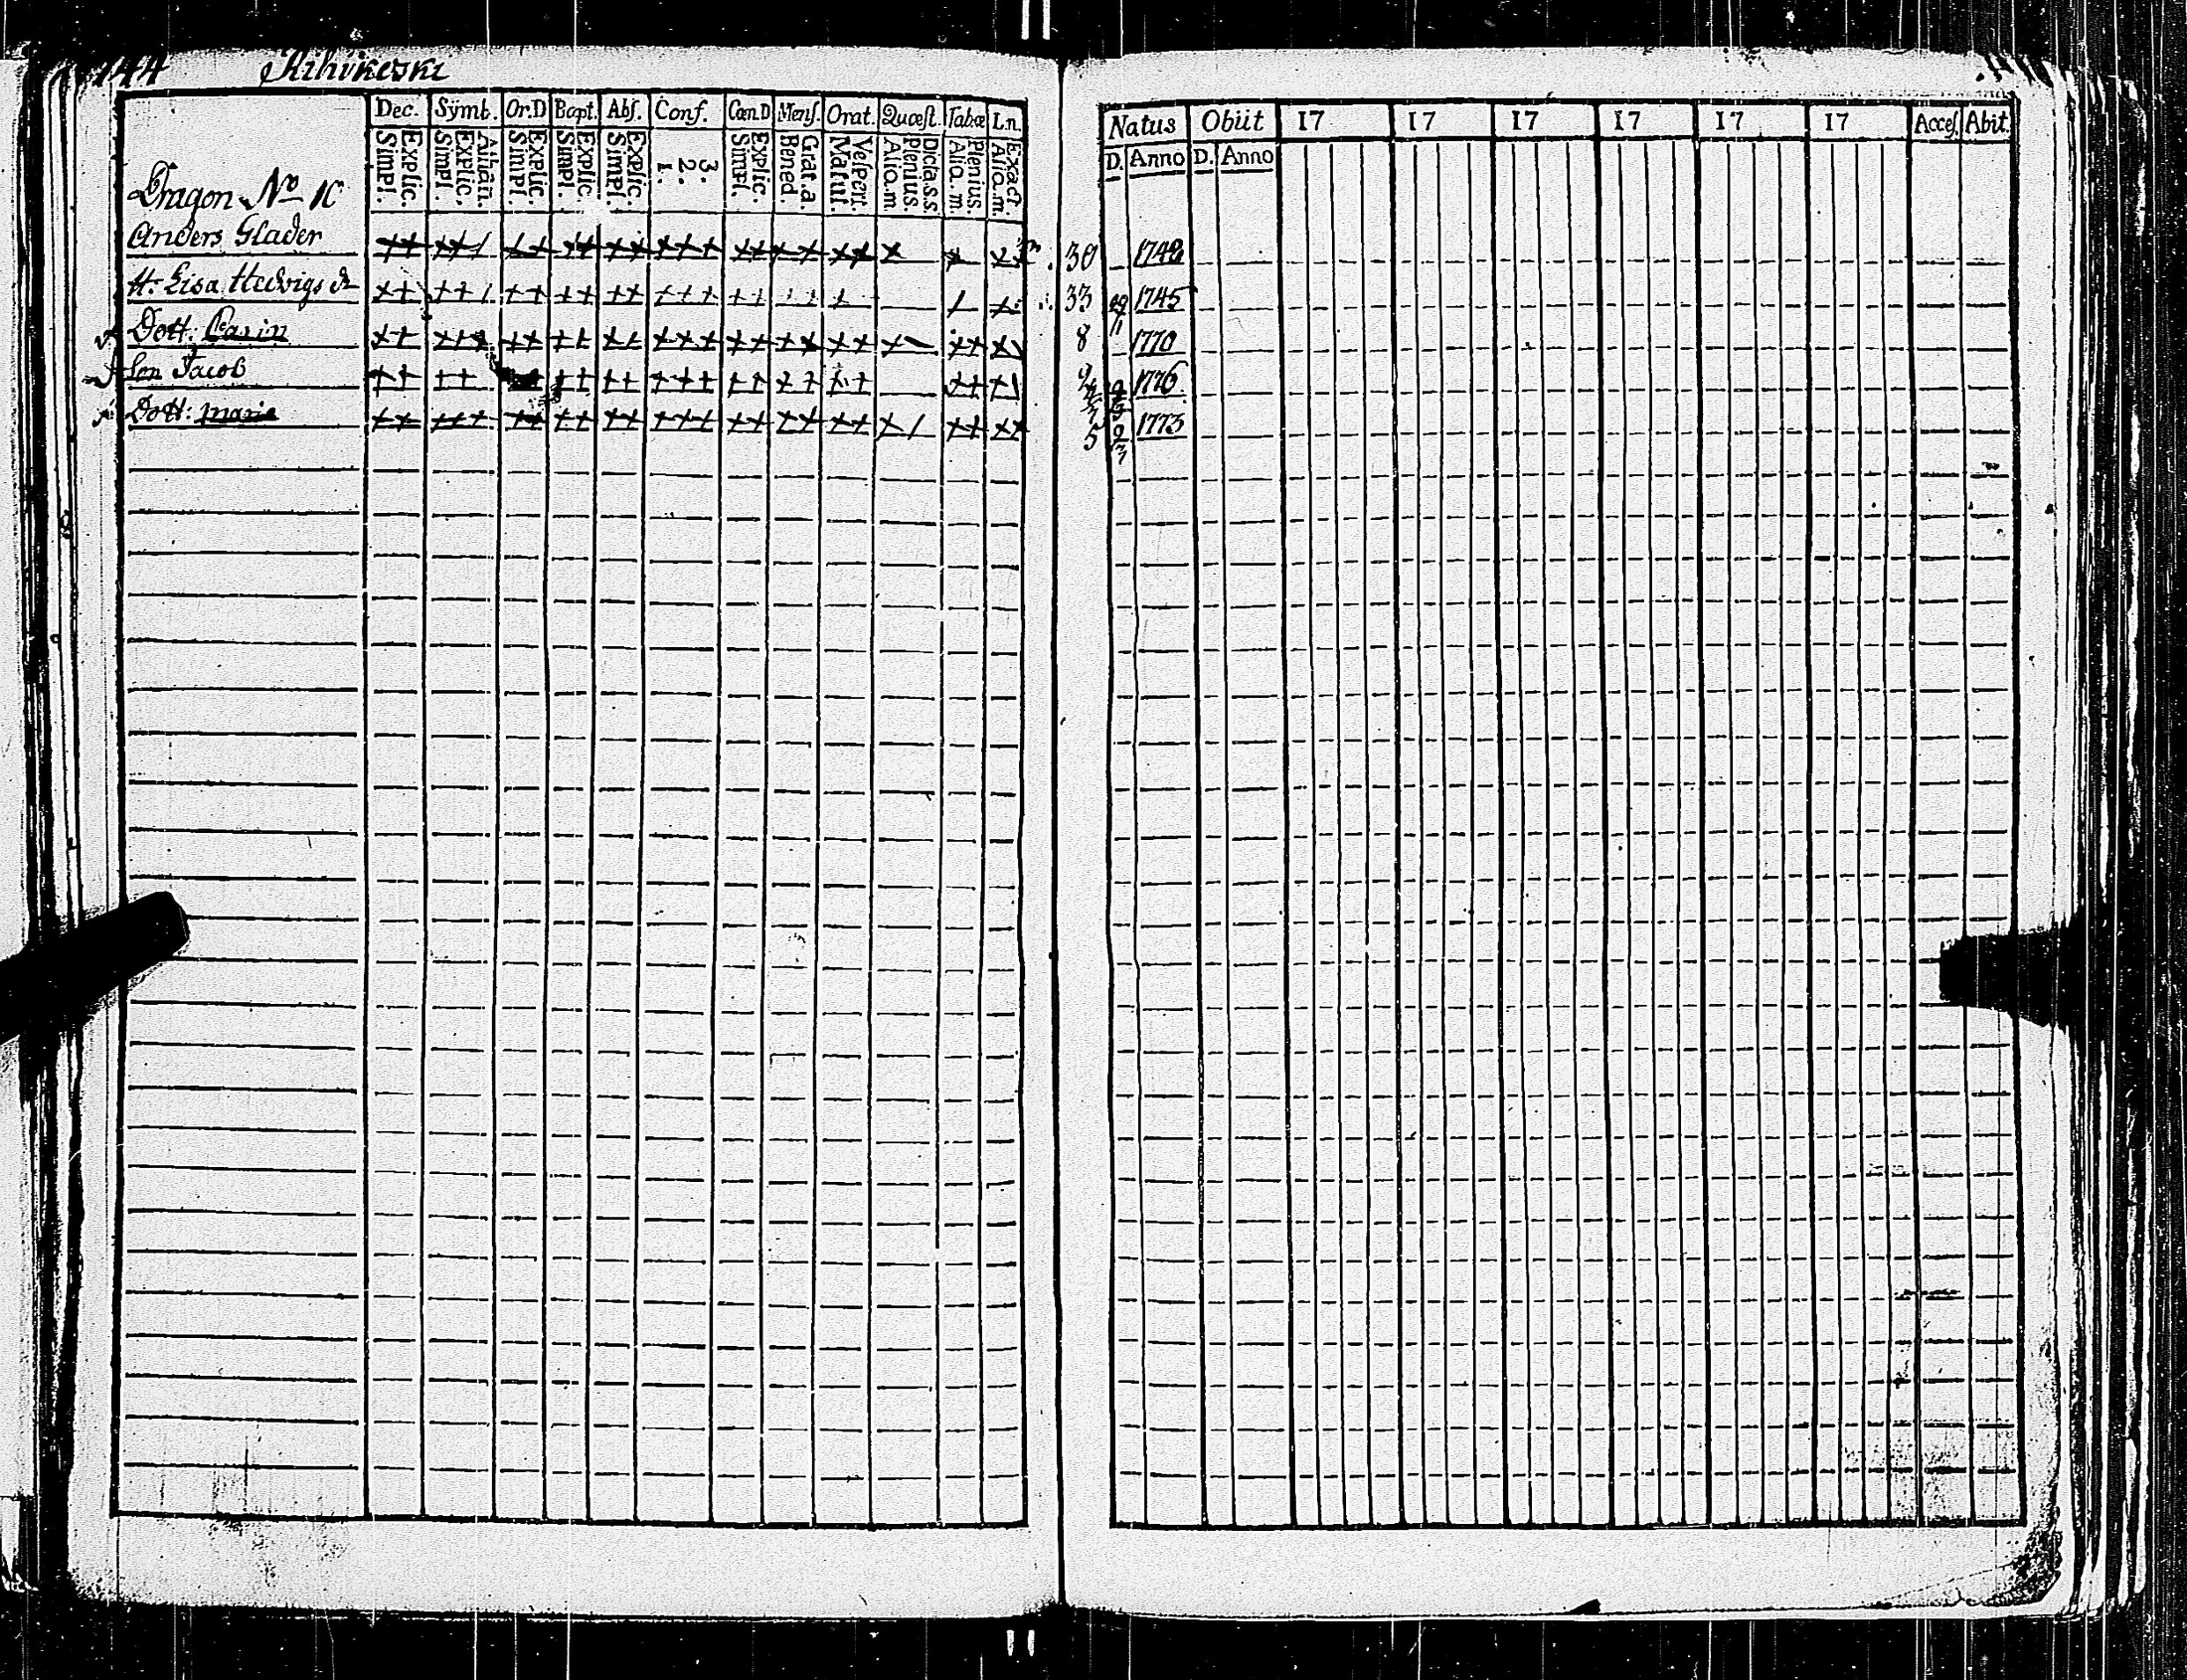 144 Kihÿkeski
Dec. Sÿmb. Or.D Bapt. Abſ. Conf. Cœn.D Menſ. Orat. Quæſt. Tabæ L.n.
Explic. Simpl. Athan. Explic. Simpl. Explic. Simpl. Explic. Simpl. Explic. Simpl. 3. 2. 1. Explic. Simpl. Grat.a Bened. Veſpert. Matut. Dicta.s.s. Plenius. Aliq.m. Plenius. Aliq.m. Exact. Aliq.m.
Natus Obiit 17 17 17 17 17 17 Acceſ. Abit.
D. Anno D. Anno
Dragon No 10
Anders Glader 30 1742
H. Lisa Hedvigs dr 33 1745
Dott: Carin 8 1770
Son Jacob 1776
Dott: Maria 5 9/3 1773